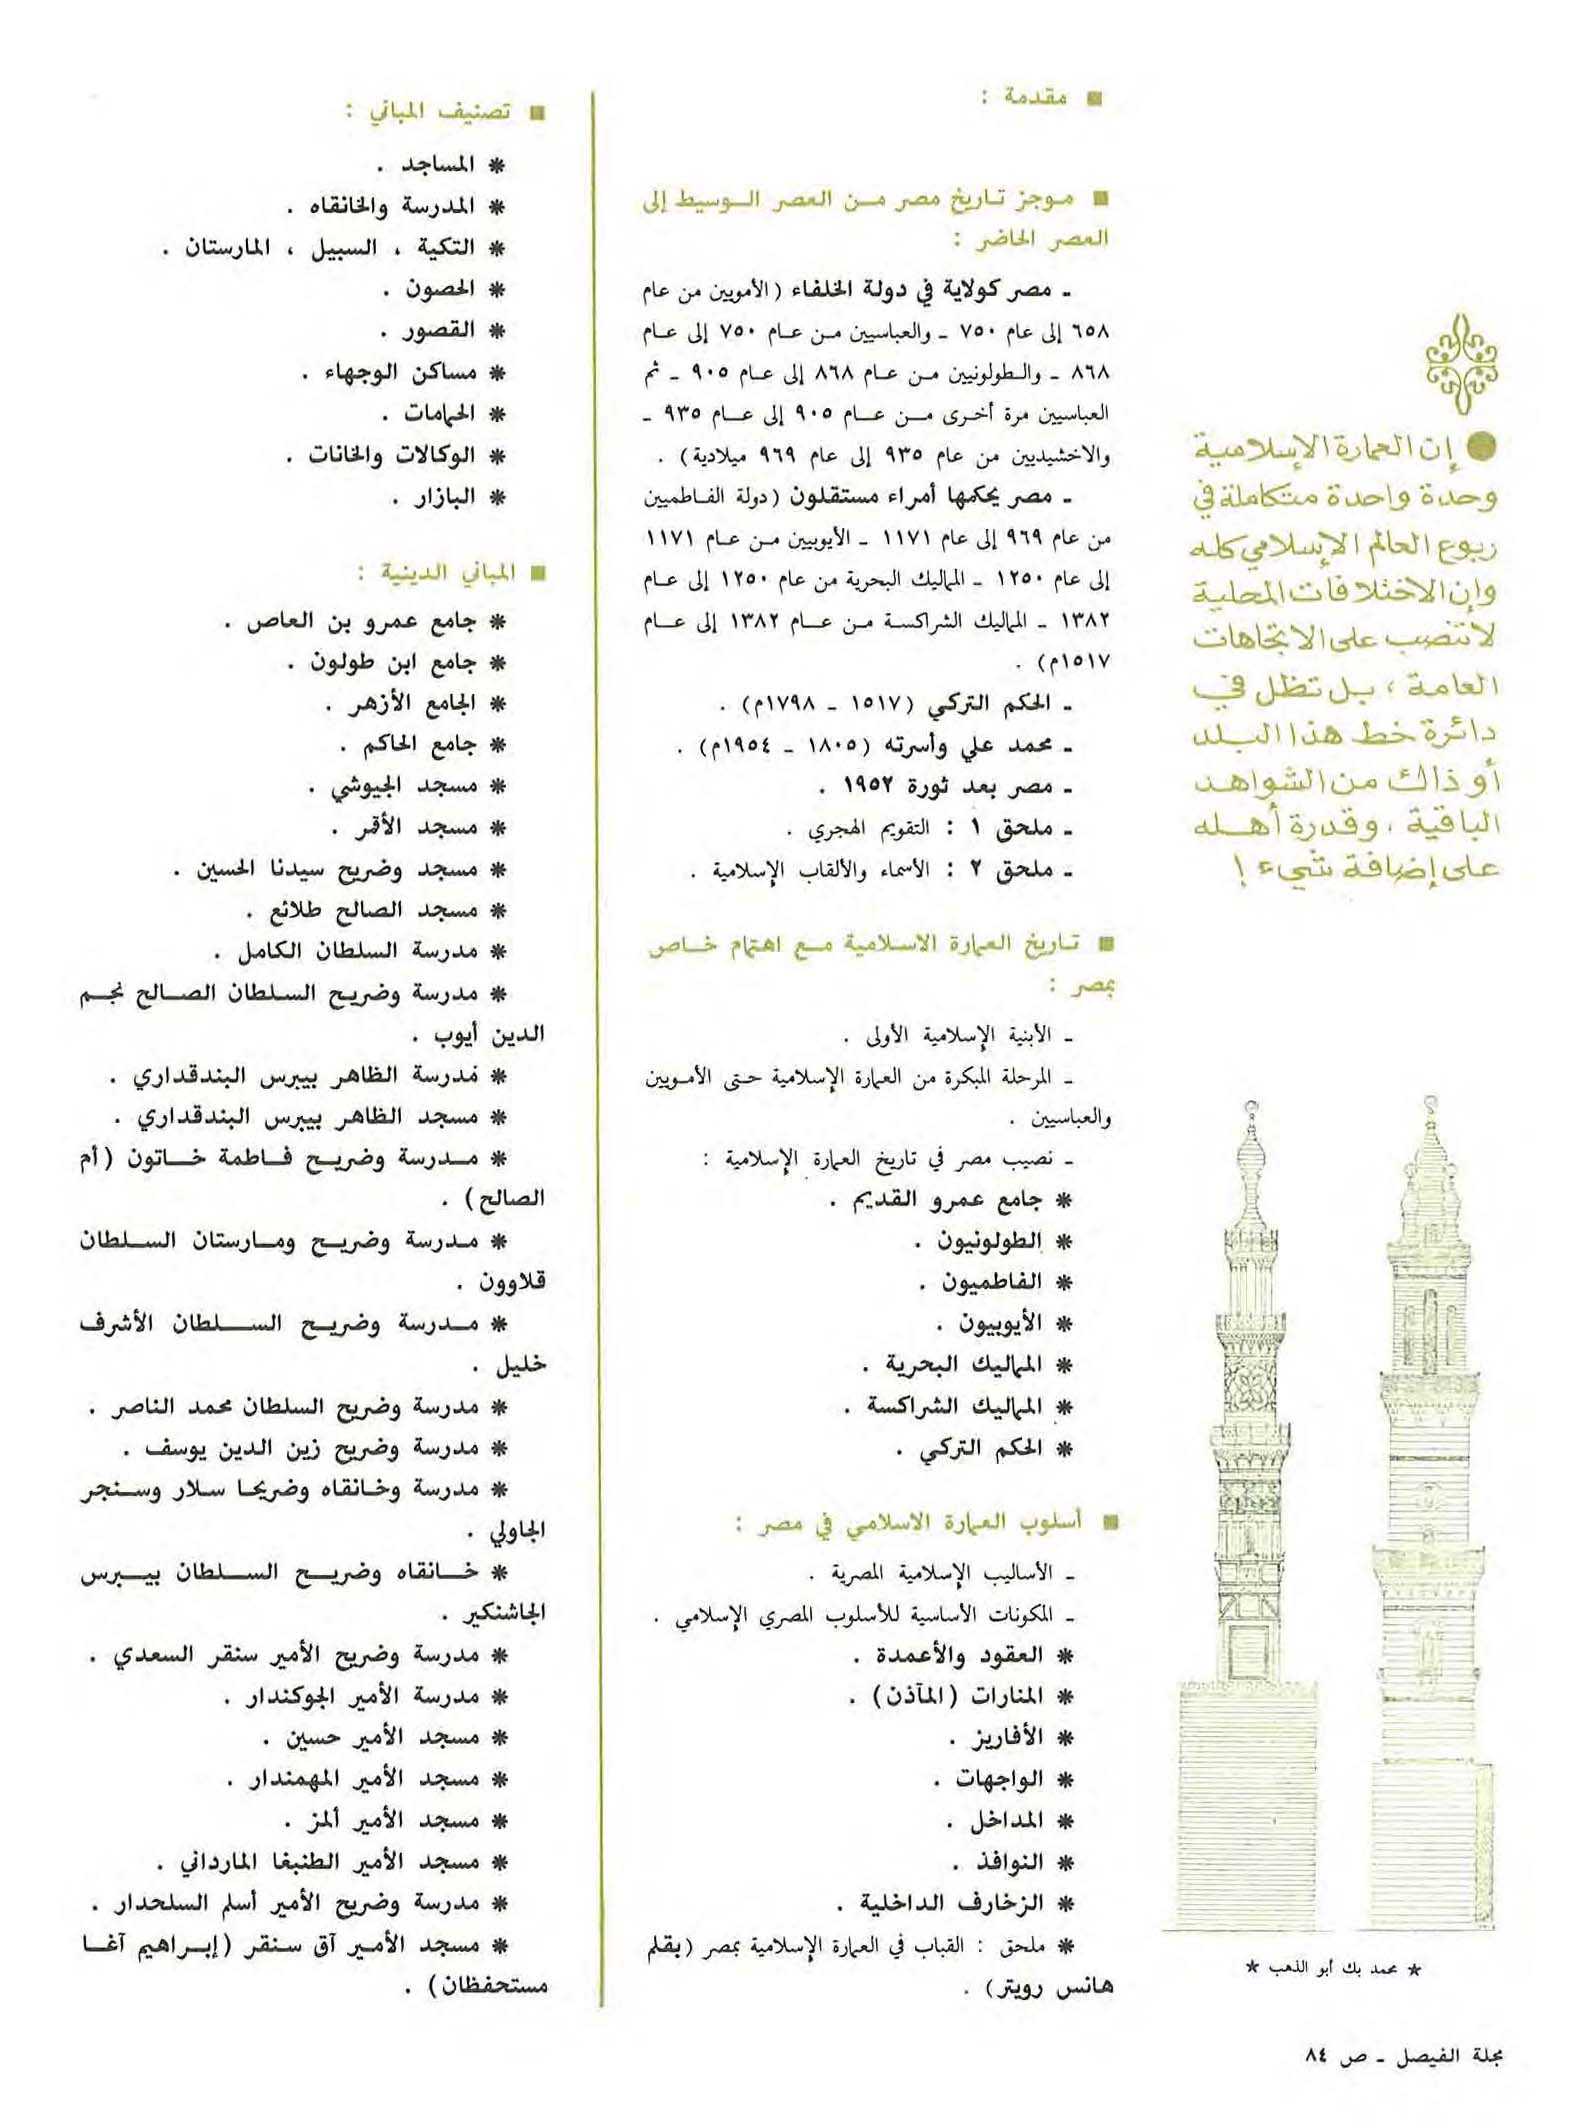 ● إن العمارة الإسلامية
وحدة واحدة متكاملة في
ربوع العالم الإسلامي كله
وإن الاختلافات المحلية
لا تنصب على الاتجاهات
العامة ، بل تظل في
دائرة خط هذا البلد
أو ذاك من الشواهد
الباقية ، وقدرة أهله
على إضافة شيء !
* محمد بك أبو الذهب *
■ مقدمة :
■ موجز تاريخ مصر من العصر الوسيط إلى
العصر الحاضر :
ـ مصر كولاية في دولة الخلفاء ( الأمويين من عام
٦٥٨ إلى عام ٧٥٠ ـ والعباسيين من عام ٧٥٠ إلى عام
٨٦٨ ـ والطولونيين من عام ٨٦٨ إلى عام ٩٠٥ ـ ثم
العباسيين مرة أخرى من عام ٩٠٥ إلى عام ٩٣٥ ـ
والاخشيديين من عام ٩٣٥ إلى عام ٩٦٩ ميلادية ) .
ـ مصر يحكمها أمراء مستقلون ( دولة الفاطميين
من عام ٩٦٩ إلى عام ١١٧١ ـ الأيوبيين من عام ١١٧١
إلى عام ١٢٥٠ ـ المماليك البحرية من عام ١٢٥٠ إلى عام
١٣٨٢ ـ المماليك الشراكسة من عام ١٣٨٢ إلى عام
١٥١٧م ) .
ـ الحكم التركي ( ١٥١٧ ـ ١٧٩٨م ) .
ـ محمد علي وأسرته ( ١٨٠٥ ـ ١٩٥٤م ) .
ـ مصر بعد ثورة ١٩٥٢ .
ـ ملحق ١ : التقويم الهجري .
ـ ملحق ٢ : الأسماء والألقاب الإسلامية .
■ تاريخ العمارة الاسلامية مع اهتمام خاص
بمصر :
ـ الأبنية الإسلامية الأولى .
ـ المرحلة المبكرة من العمارة الإسلامية حتى الأمويين
والعباسيين .
ـ نصيب مصر في تاريخ العمارة الإسلامية :
* جامع عمرو القديم .
* الطولونيون .
* الفاطميون .
* الأيوبيون .
* المماليك البحرية .
* المماليك الشراكسة .
* الحكم التركي .
■ أسلوب العمارة الاسلامي في مصر :
ـ الأساليب الإسلامية المصرية .
ـ المكونات الأساسية للأسلوب المصري الإسلامي .
* العقود والأعمدة .
* المنارات ( المآذن ) .
* الأفاريز .
* الواجهات .
* المداخل .
* النوافذ .
* الزخارف الداخلية .
* ملحق : القباب في العمارة الإسلامية بمصر ( بقلم
هانس رويتر ) .
■ تصنيف المباني :
* المساجد .
* المدرسة والخانقاه .
* التكية ، السبيل ، المارستان .
* الحصون .
* القصور .
* مساكن الوجهاء .
* الحمامات .
* الوكالات والخانات .
* البازار .
■ المباني الدينية :
* جامع عمرو بن العاص .
* جامع ابن طولون .
* الجامع الأزهر .
* جامع الحاكم .
* مسجد الجيوشي .
* مسجد الأقمر .
* مسجد وضريح سيدنا الحسين .
* مسجد الصالح طلائع .
* مدرسة السلطان الكامل .
* مدرسة وضريح السلطان الصالح نجم
الدين أيوب .
* مدرسة الظاهر بيبرس البندقداري .
* مسجد الظاهر بيبرس البندقداري .
* مدرسة وضريح فاطمة خاتون ( أم
الصالح ) .
* مدرسة وضريح ومارستان السلطان
قلاوون .
* مدرسة وضريح السلطان الأشرف
خليل .
* مدرسة وضريح السلطان محمد الناصر .
* مدرسة وضريح زين الدين يوسف .
* مدرسة وخانقاه وضريحا سلار وسنجر
الجاولي .
* خانقاه وضريح السلطان بيبرس
الجاشنكير .
* مدرسة وضريح الأمير سنقر السعدي .
* مدرسة الأمير الجوكندار .
* مسجد الأمير حسين .
* مسجد الأمير المهمندار .
* مسجد الأمير ألمز .
* مسجد الأمير الطنبغا المارداني .
* مدرسة وضريح الأمير أسلم السلحدار .
* مسجد الأمير آق سنقر ( إبراهيم آغا
مستحفظان ) .
مجلة الفيصل ـ ص ٨٤